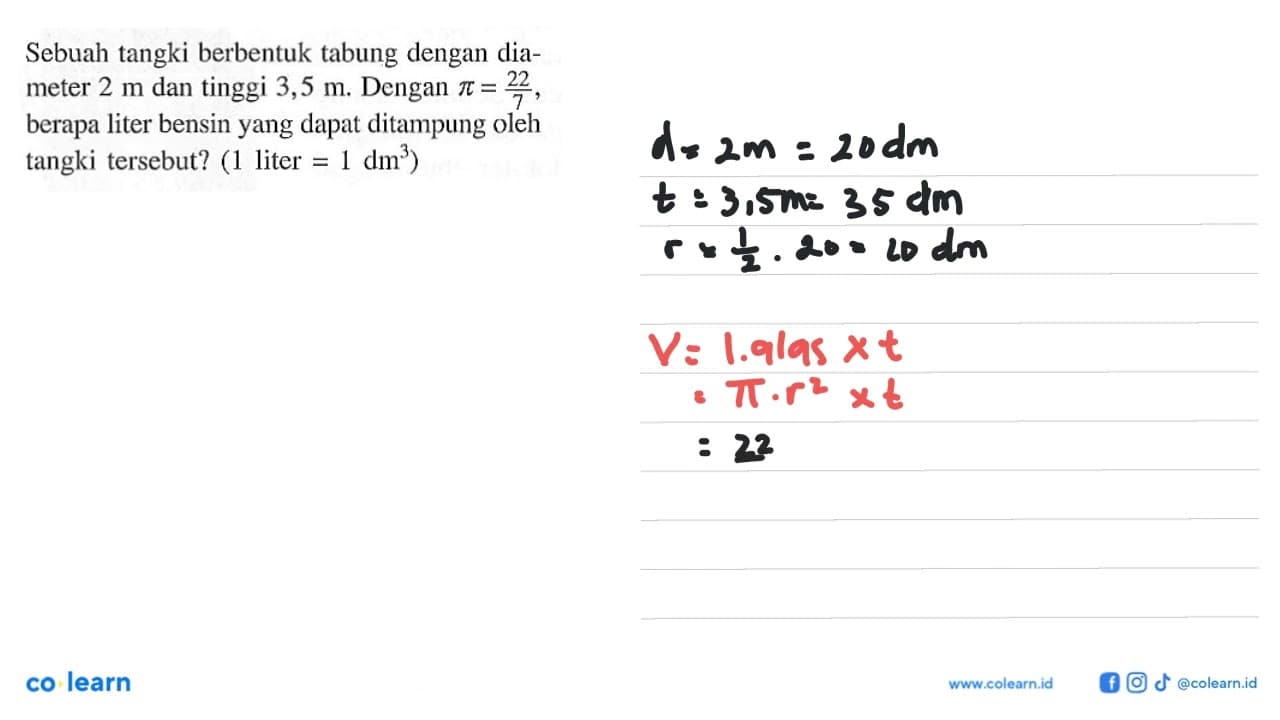 Sebuah tangki berbentuk tabung dengan dia-
meter 2 m dan tinggi 3,5 m. Dengan π = 22/7,
berapa liter bensin yang dapat ditampung oleh
tangki tersebut? (1 liter = 1 dm³)
d = 2m = 20 dm
t = 3,5m = 35 dm
r = 1/2 . 20 = 10 dm
V = l.alas x t
= π . r² x t
= 22
co learn
www.colearn.id
@colearn.id